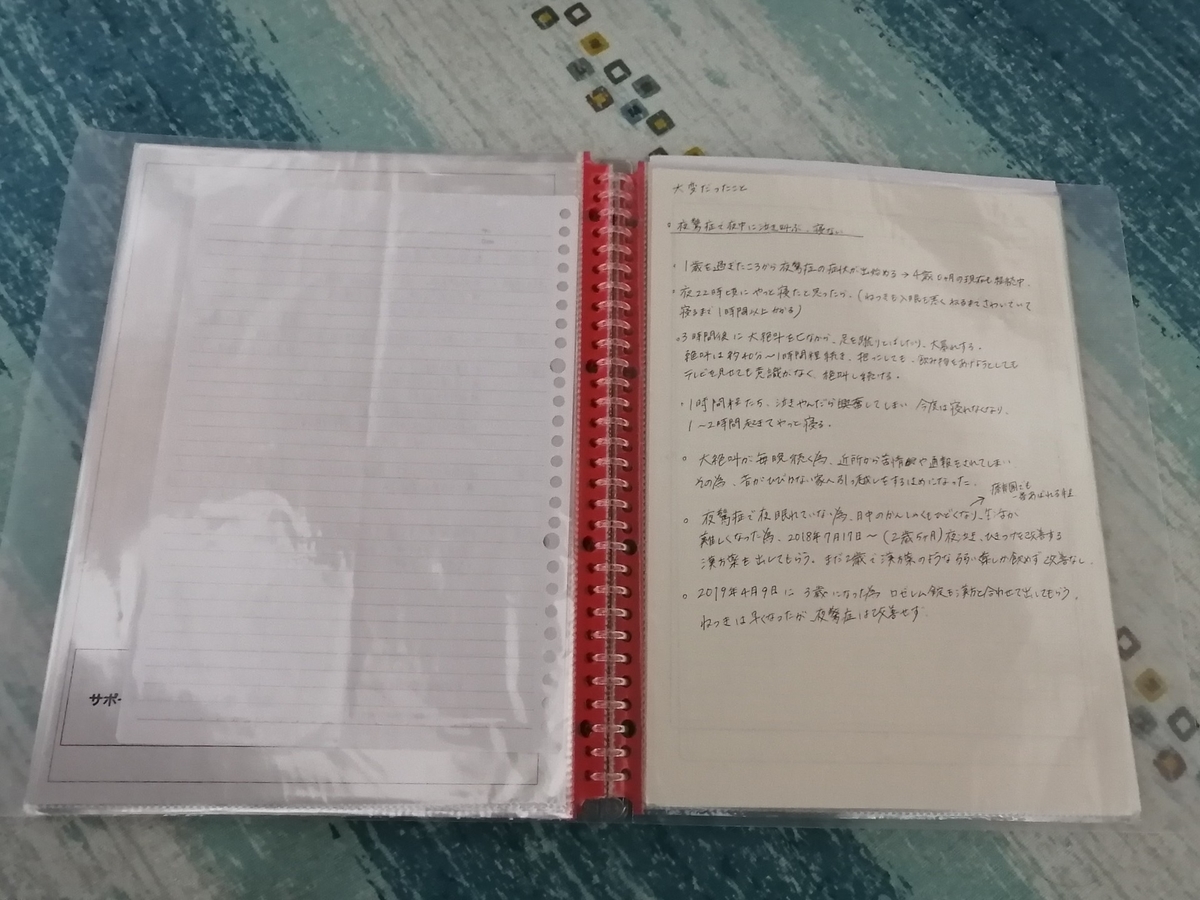 サポ
大変だったこと
○ 夜驚症で夜中に泣き叫ぶ、寝ない
・1歳を過ぎたころから夜驚症の症状が出始める→4歳6ヶ月の現在も継続中。
・夜22時頃にやっと寝たと思ったら、(ねつきも入眠も悪くねるまでさわいでいて
寝るまで1時間以上かかる)
・3時間後に大絶叫をしながら、足を蹴りとばしたり、大暴れする。
絶叫は約40分～1時間程続き、抱っこしても、飲み物をあげようとしても
テレビを見せても意識がなく、絶叫し続ける。
・1時間程たち、泣きやんだら興奮してしまい 今度は寝れなくなり、
1～2時間起きてやっと寝る。
○ 大絶叫が毎晩続く為、近所から苦情や通報をされてしまい
その為、音がひびかない家へ引っ越しをするはめになった。
保育園にも
一番あばれる
○ 夜驚症で夜眠れていない為、日中のかんしゃくもひどくなり、生活が
難しくなった為、2018年7月17日～(2歳5ヶ月)夜泣き、ひきつけを改善する
漢方薬を出してもらう。まだ2歳で漢方薬のような弱い薬しか飲めず改善なし。
○ 2019年4月9日に 3歳になった為 ロゼレム錠を漢方と合わせて出してもらう。
ねつきは早くなったが 夜驚症は改善せず